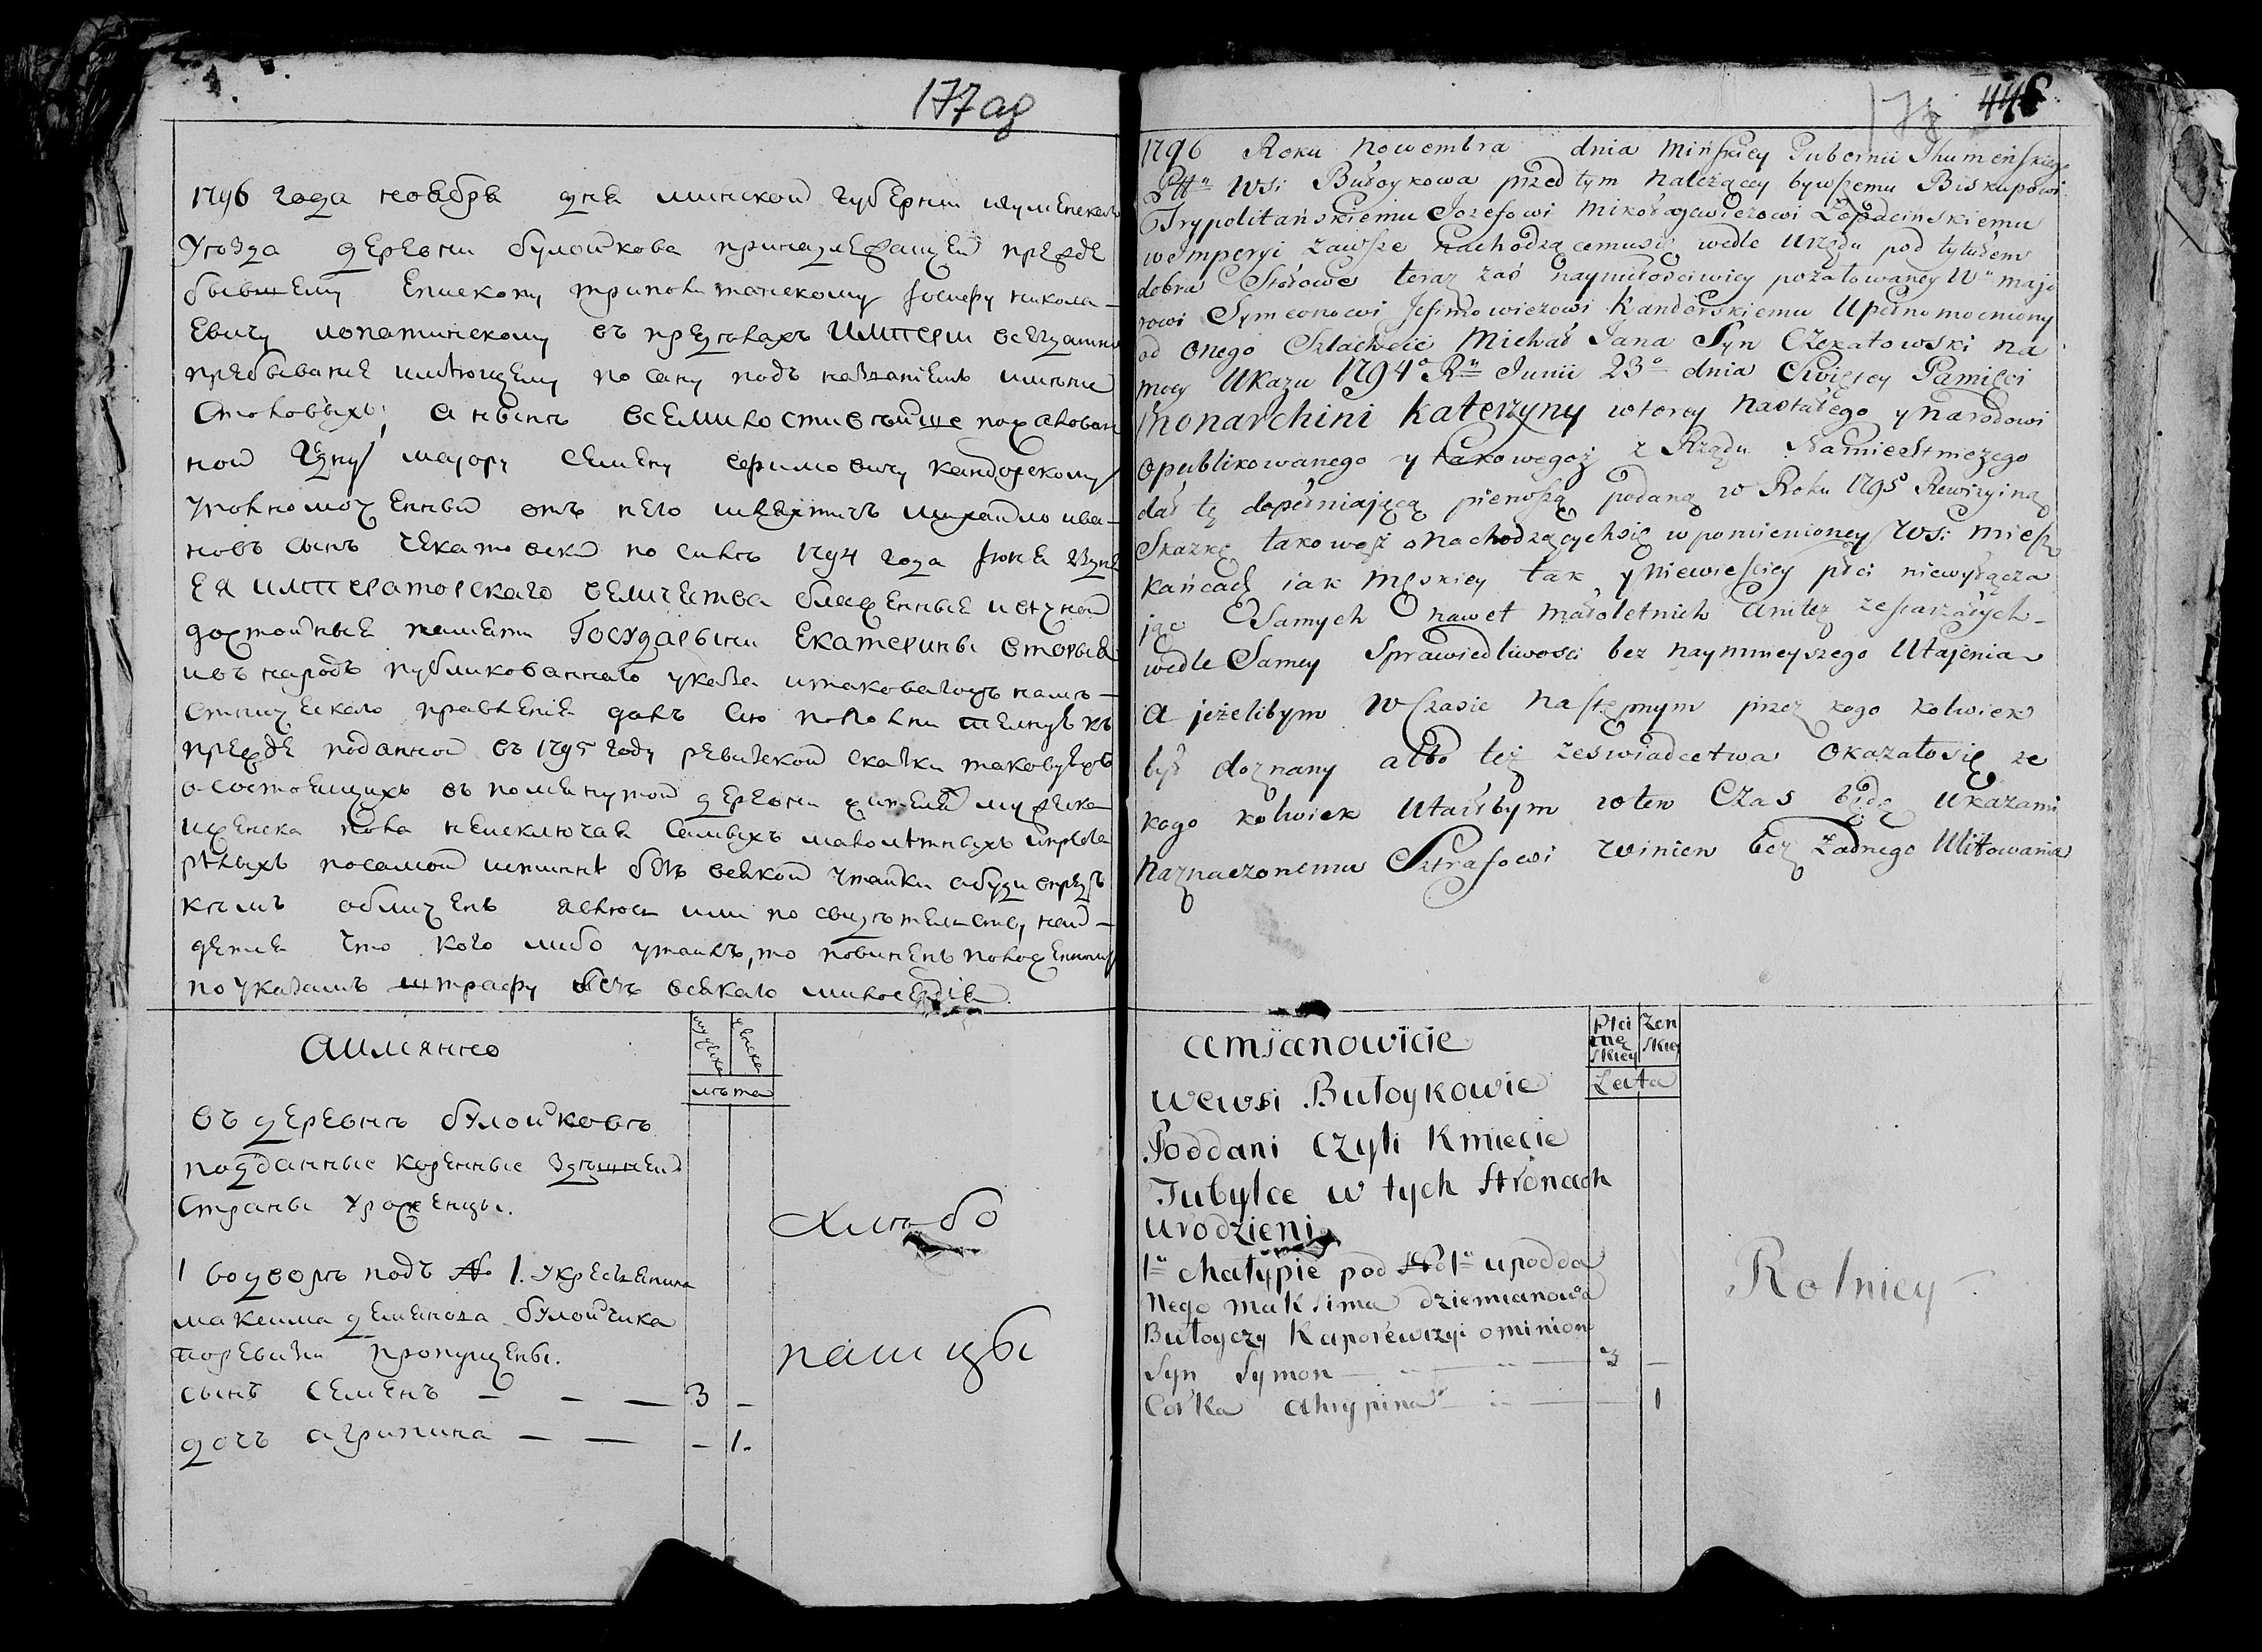 177 об
1796 года ноября дня минской губернии игуменскаго
уезда деревни булойкова принадлежащей прежде
бывшему Епископу триполитанскому Iосифу никола-
евичу лопатинскому въ пределахъ Империи всегдашне
пребывание имеющему по сану подъ названиемъ имения
Столовыхъ, а нынъ всемилостивейше пожалован
ной Гдну маіору Семену ефимовичу кандорскому
уполномоченный отъ него шляхтичъ михайло ива-
новъ сынъ чекатовски по силъ 1794 года Iюня 23 дня
Ея императорскаго величества блаженныя и вечной
достойныя памяти Государыни Екатерины вторыя
и въ народъ публикованнаго указа и таковагожъ намъ-
стническаго правления далъ сию
прежде поданной въ 1795 году ревизкой скаски таковуюжъ
о состоящихъ въ помянутой деревни жителяй мужеска
и женска пола неисключая самыхъ малолетныхъ и престо
релыхъ по самой истинне безъ всякой утайки а буди впредъ
къмъ обличенъ явлюся или по свидетельству най-
детця что кого либо утаилъ, то повиненъ положенному
по указамъ штрафу безъ всякаго милосердія.
Аимянно
мужеска женска
лъта
въ деревнъ булойковъ
подданные коренные здъшней
Страны уроженцы.
1 во дворъ подъ № 1. у крестьянина
максима деменова булойчика
по ревизи пропущены.
сынъ семенъ — — — 3 —
дочь агрипина — — — 1.
Хлъбо
пашцы
446
1796 Roku Nowembra dnia Mińskiey Gubernii Ihumeńskiego
Pttu Wsi Bułoykowa przed tym należącey bywszemu Biskupowi
Trypolitańskiemu Jozefowi Mikołajewiczowi Łopacińskiemu
w Imperyi zawsze nachodzącemusię wedle urzędu pod tytułem
dobra Stołowe teraz zaś naymiłościwiey pożałowaney Wu majo
rowi Symeonowi Jefimowiczowi Kandorskiemu Upełnomocniony
od onego Szlachcic Michał Jana Syn Czekatowski na
mocy Ukazu 1794o Ru Junii 23o dnia Swiętey Pamięci
Monarchini Katerzyny wtorey nastałego y narodowi
Opublikowanego y takowegoż z Rządu Namiestniczego
dał tę dopełniającą pierwszą podaną w Roku 1795o Rewizyiną
Skazkę takoważ o nachodzącychsię w pomienioney Wsi miesz
kańcach iak męskiey tak y niewieściey płci niewyłącza
jąc Samych nawet małoletnich anitez zestarzałych
wedle Samey Sprawiedliwości bez naymnieyszego Utajenia
A jeżelibym W czasie Następnym przez kogo kolwiek
był doznany albo też ze świadectwa Okazałosię ze
kogo kolwiek Utaiłbym w ten Czas będę Ukazami
Naznaczonemu Sztrafowi winien bez Żadnego Ulitowania
Amianowicie
Płci mę skiey Żen skiey
Lata
we wsi Bułoykowie
Poddani Czyli Kmiecie
Tubylce w tych stronach
urodzieni
1u chałupie pod No 1u u podda
nego Maksima dziemianowa
Bułoyczy Kaporewizyi ominion
Syn Symon — 3 —
Corka Ahrypina — — 1
Rolnicy